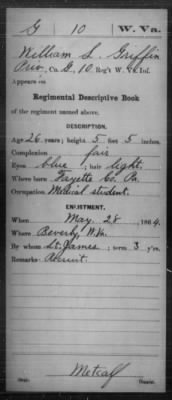 G 10 W. Va.
William L. Griffin
Priv., Co. G, 10 Reg't W. Va. Inf.
Appears on
Regimental Descriptive Book
of the regiment named above.
DESCRIPTION.
Age 26 years; height 5 feet 5 inches.
Complexion fair
Eyes blue; hair light.
Where born Fayette Co. Pa.
Occupation Medical student.
ENLISTMENT.
When May 28, 1864.
Where Beverly, W.Va.
By whom Lt. James; term 3 y'rs.
Remarks: Recruit.
Metcalf
Copyist.